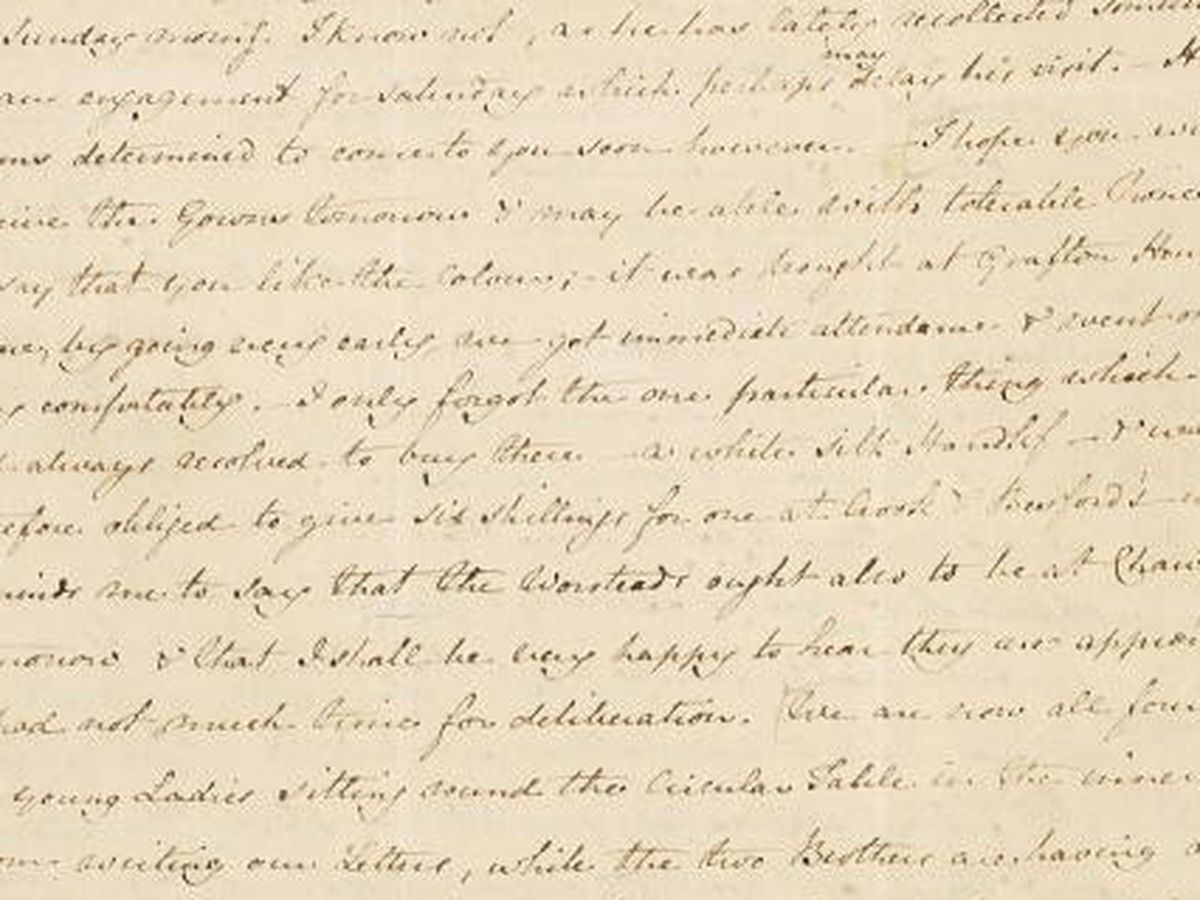 Sunday morng. I know not, as he has lately recollected
may
an engagement for Saturday which perhaps delay his visit. - H
determined to come to you soon however. - I hope you
the Gown tomorrow & may be able with tolerable
say that you like the Colour; - it was bought at Grafton Hou
by going very early we got immediate attendance & went
comfortably. - I only forgot the one particular thing which
always resolved to buy there - a white silk Handkf - & was
efore obliged to give six shillings for one at Crook & Besford's -
me to say that the Worsteads ought also to be at Chaw
morrow & that I shall be very happy to hear they are approv
had not much time for deliberation. We are now all four
young Ladies sitting round the Circular Table in the inner
writing our Letters, while the two Brothers are having a